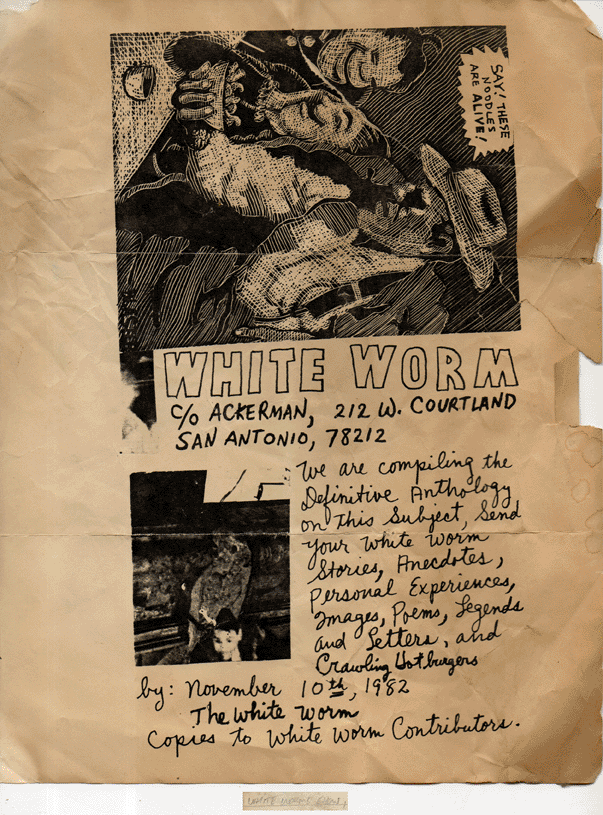 SAY! THESE
NOODLES
ARE ALIVE!
WHITE WORM
C/O ACKERMAN, 212 W. COURTLAND
SAN ANTONIO, 78212
We are compiling the
Definitive Anthology
on This Subject, Send
your White Worm
Stories, Anecdotes,
Personal Experiences,
Images, Poems, Legends
and Letters, and
Crawling Hotburgers
by: November 10th, 1982
The White Worm
Copies to White Worm Contributors.
WHITE WORM